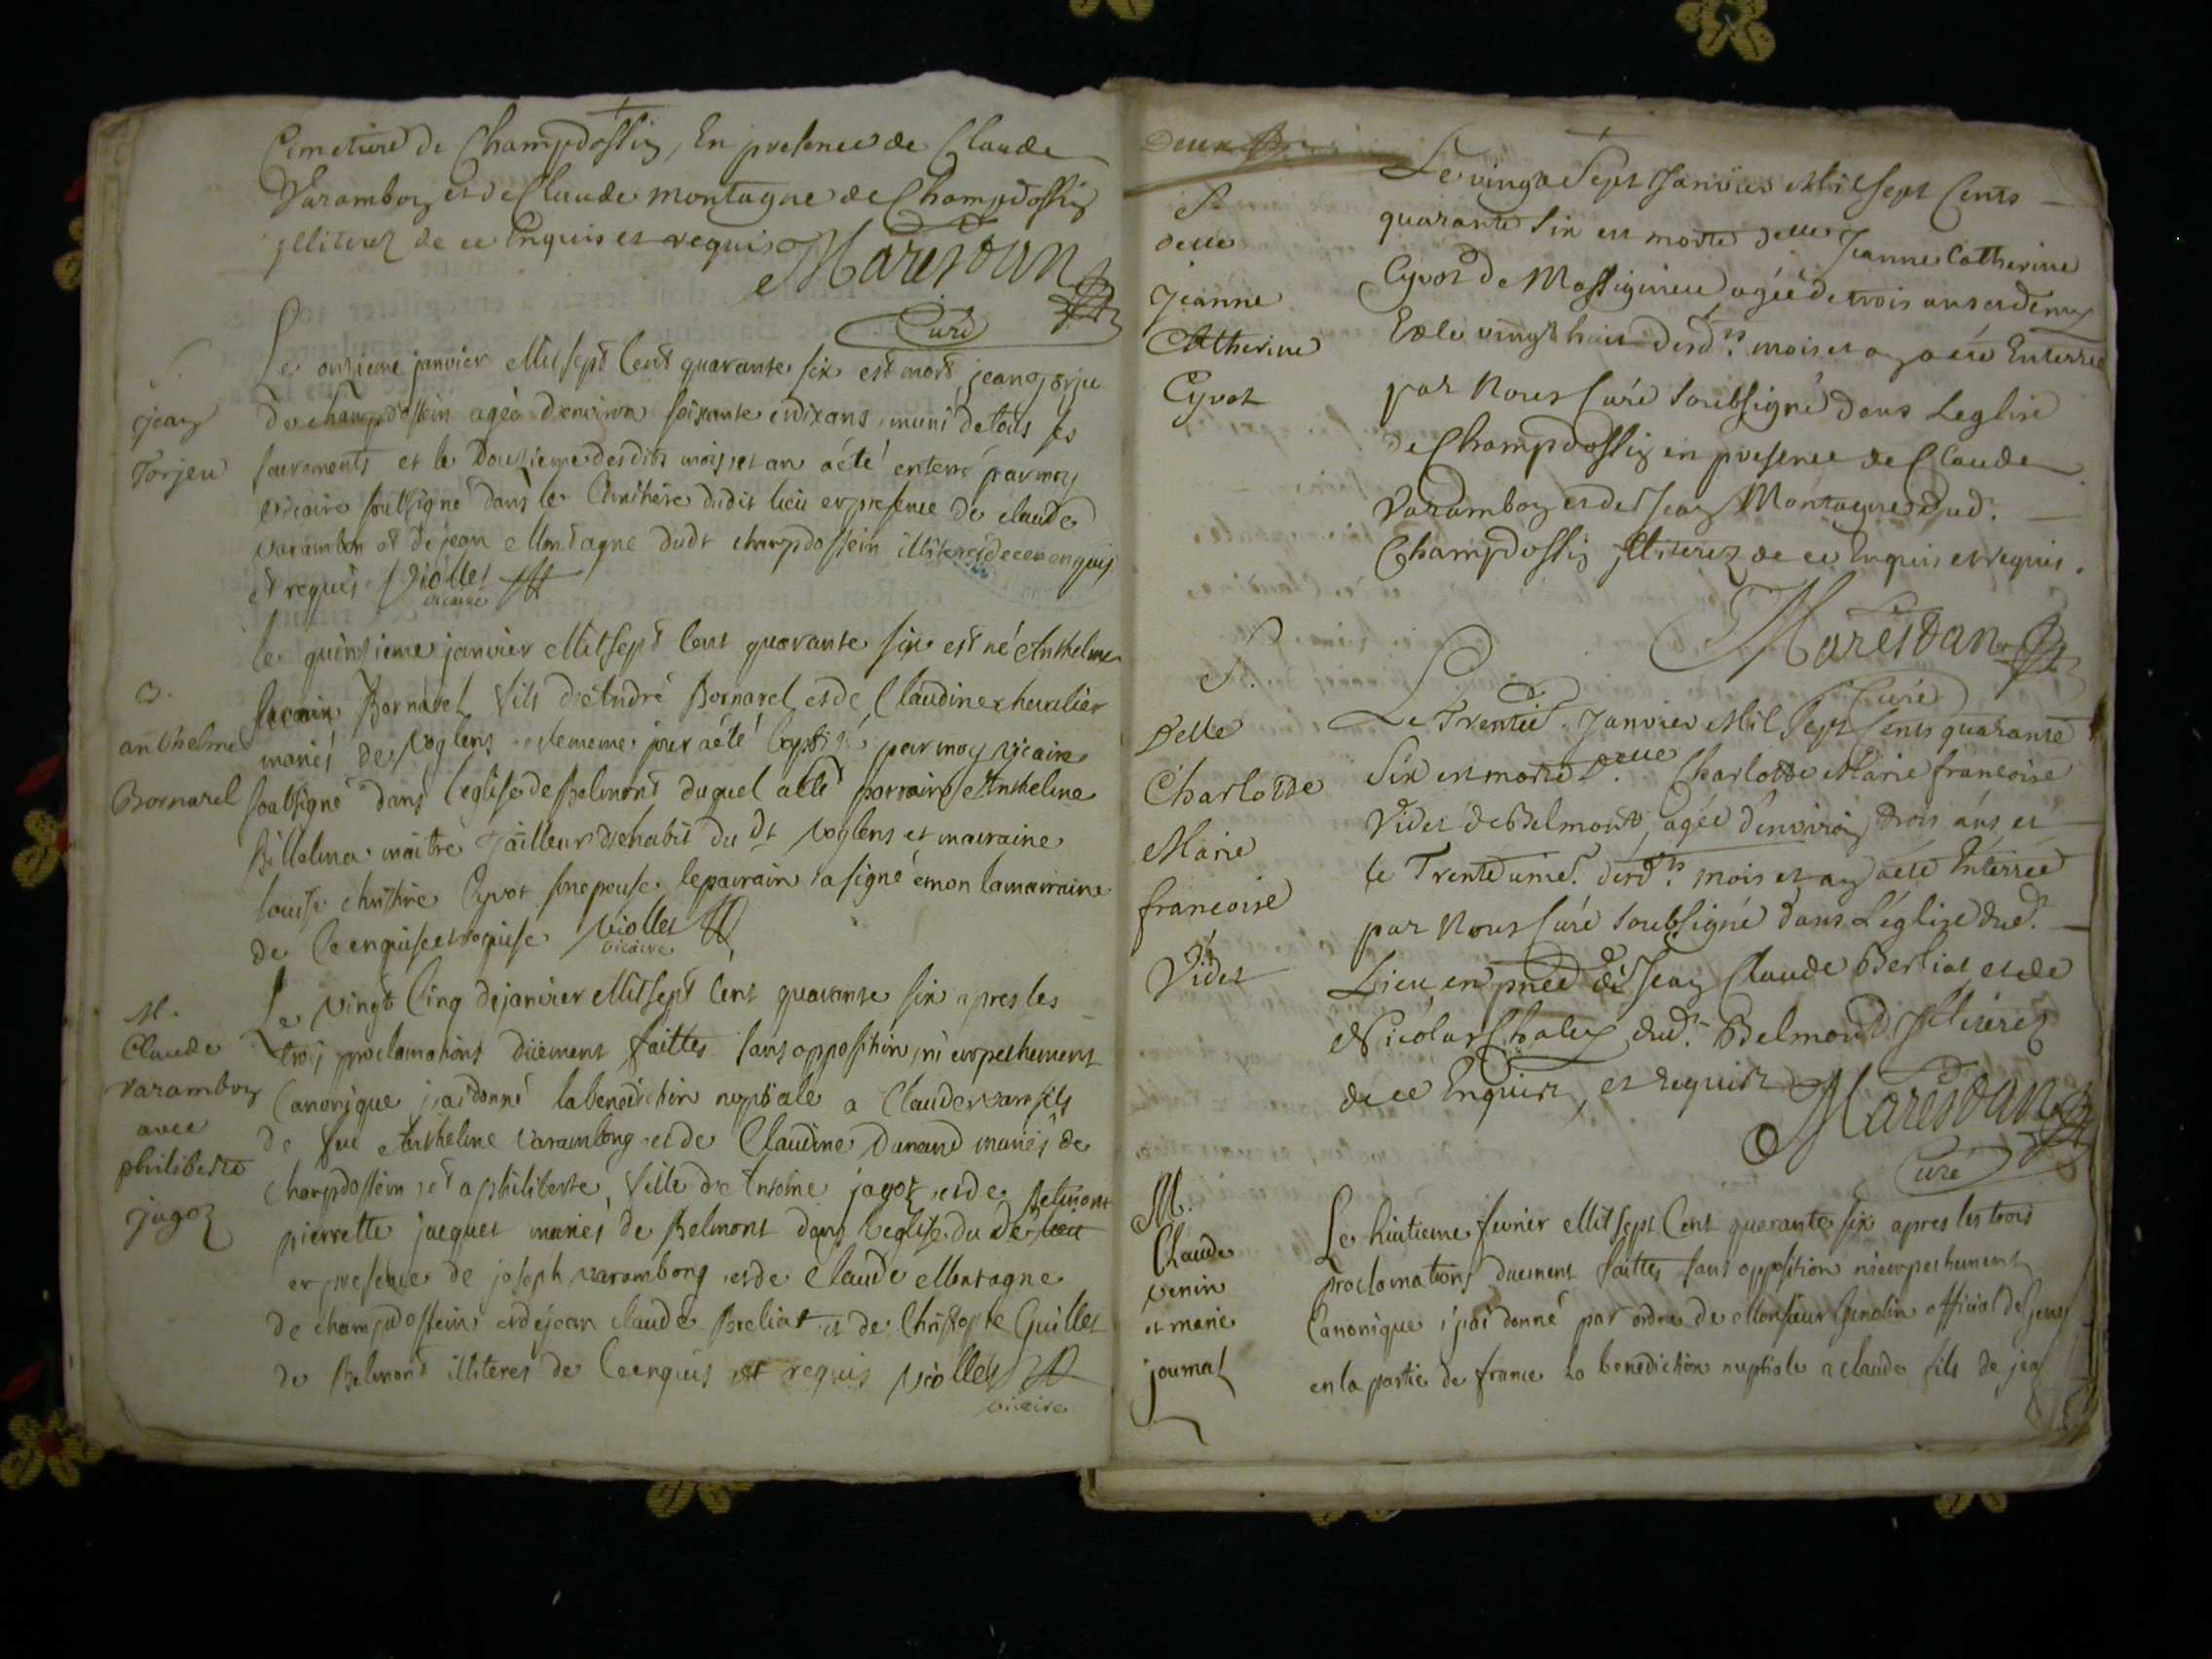 Cimetiere de Champdossin, En presence de Claude
Varambon et de Claude montagne de Champdossin
jlliterez de ce Enquis et requis Marestan
Curé
S.
jean
Torjeu
Le onzieme janvier Mil sept Cent quarante six est mort jean Torju
de champdossein agéé d'environ soixante et dix ans, muni de tous ses
sacrements et le Douzieme desdits mois, et an a été enterré par moy
vicaire soubsigné dans le Cimitiere dudit lieu en presence de claude
varambon et de jean Montagne dudt champdossein illiterés de ce enquis
et requis Viollet
vicaire
B.
anthelme
Bornarel
le quinzieme janvier Mil sept Cent quarante six est né Anthelme
Bornarel fils d'André Bornarel et de Claudine chevalier
mariés de Voglens et le meme jour a été baptisé par moy vicaire
soubsigné dans l'eglise de Belmont duquel a été parrain Anthelme
Billelma maitre Tailleur d'habit du dt Voglens et marraine
louise christine Cyvot son epouse. le parrain a signé et non la marraine
de Ce enquise et requise Viollet
vicaire
M.
Claude
varambon
avec
philiberte
jagoz
Le vingt Cinq de janvier Mil sept Cent quarante six apres les
trois proclamations düement faittes sans opposition, ni empechement
Canonique j'ai donné la benediction nuptiale a Claude varam fils
de feu Anthelme Varambong et de Claudine Danand mariés de
champdossein et a philiberte, fille d'Antoine jagoz et de
pierrette jacquet mariés de Belmont dans l'eglise du de Belmont
en presence de joseph varambong et de Claude Montagne
de champdossein et de jean claude Berliat et de Christophe Guillet
de Belmond illiteres de Ce enquis et requis Viollet
vicaire
Deux
S.
delle
Jeanne
Catherine
Cyvot
Le vingt Sept Janvier Mil sept Cents
quarante Six est morte delle Jeanne Catherine
Cyvot de Massignieu, agéé de trois ans et demy
Et le vingt huit desd.ts mois et an a été Enterrée
par Nous Curé Soubsigné dans L'eglise
de Champdossin en presence de Claude
Varambon et de Jean Montagne dud.
Champdossin jlliterez de ce Enquis et requis.
Marestan
Curé
S.
Delle
Charlotte
Marie
francoise
Videt
Le Trentie. Janvier Mil Sept Cents quarante
Six est morte D.elle Charlotte Marie francoise
Videt de Belmont, agéé d'environ trois ans et
le Trente unie. desd.ts mois et an a été Enterréé
par Nous Curé Soubsigné dans L'église dud.
Lieu, en pnce de Jean Claude Berliat et de
Nicolas Chaley dud. Belmond Jlliterez
de ce Enquis, et requis Marestan
Curé
M.
Claude
venin
et marie
journal
Le huitieme fevrier Mil sept Cent quarante six apres les trois
proclamations duement faittes sans opposition ni empechement
Canonique j'ai donné par ordre de Monsieur official de
en la partie de france la benediction nuptiale a claude fils de jean